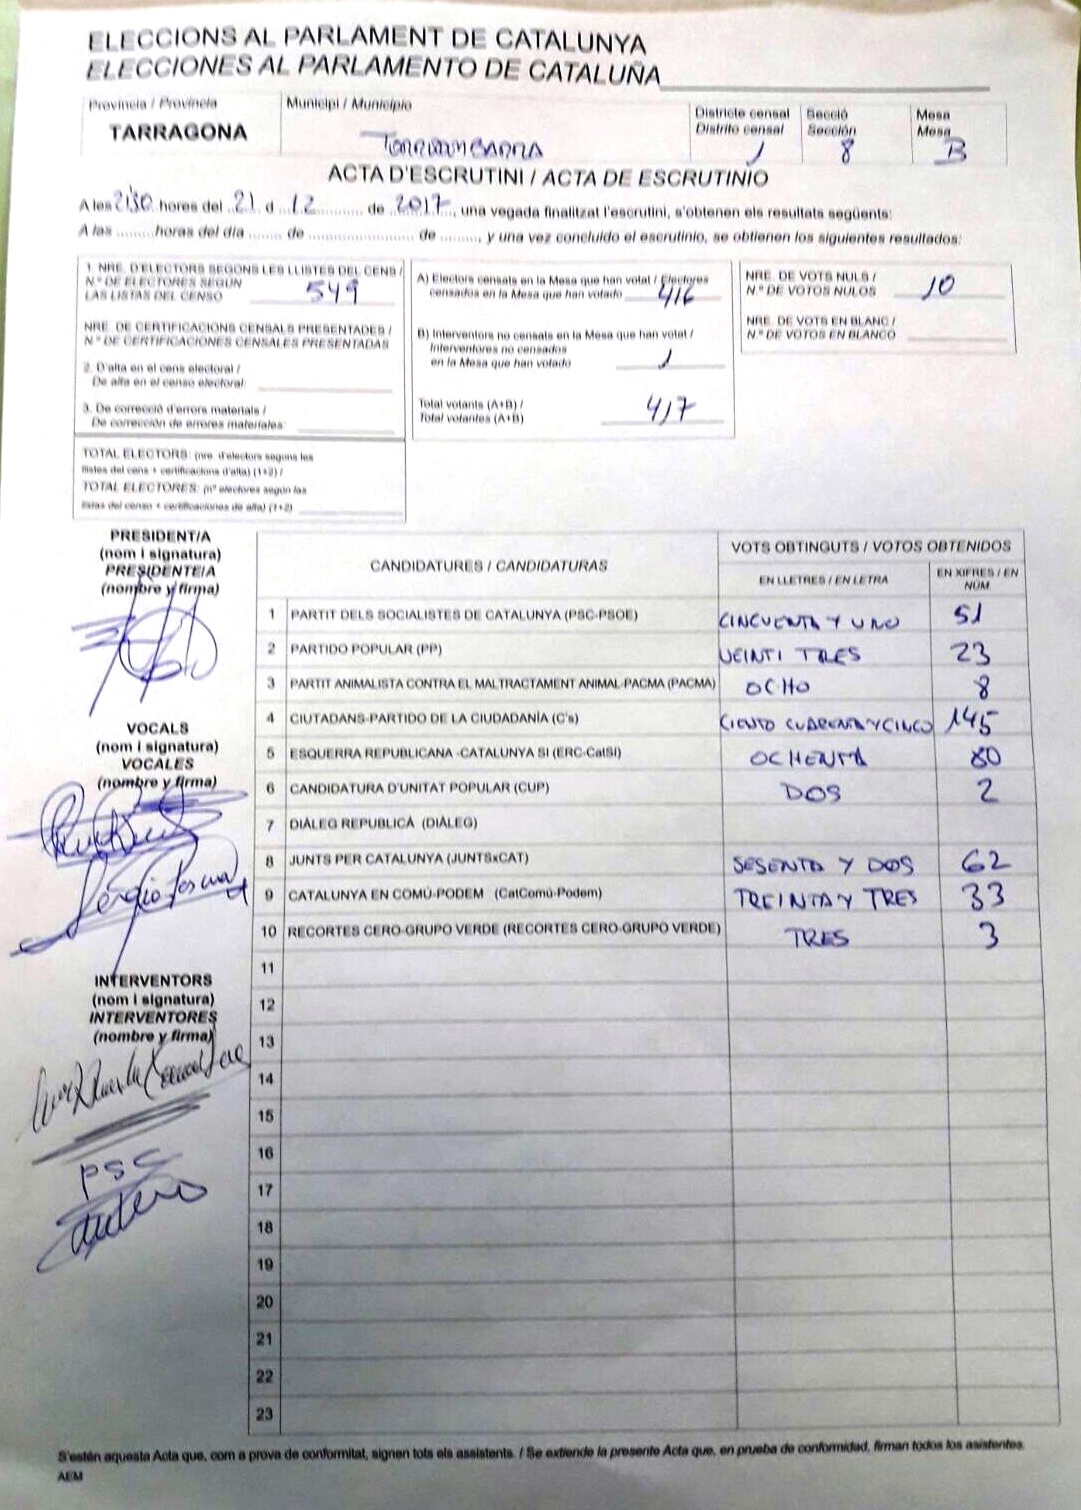 ELECCIONS AL PARLAMENT DE CATALUNYA
ELECCIONES AL PARLAMENTO DE CATALUÑA
Província / Provincia
TARRAGONA
Municipi / Municipio
TORREDEMBARRA
Districte censal
Distrito censal
1
Secció
Sección
8
Mesa
Mesa
B
ACTA D'ESCRUTINI / ACTA DE ESCRUTINIO
A les 21'30 hores del 21 d 12 de 2017, una vegada finalitzat l'escrutini, s'obtenen els resultats següents:
A las ......... horas del día ........ de ........................ de ........., y una vez concluido el escrutinio, se obtienen los siguientes resultados:
1. NRE. D'ELECTORS SEGONS LES LLISTES DEL CENS /
N.º DE ELECTORES SEGÚN
LAS LISTAS DEL CENSO 549
NRE. DE CERTIFICACIONS CENSALS PRESENTADES /
N.º DE CERTIFICACIONES CENSALES PRESENTADAS
2. D'alta en el cens electoral /
De alta en el censo electoral:
3. De correcció d'errors materials /
De corrección de errores materiales:
TOTAL ELECTORS: (nre. d'electors segons les
llistes del cens + certificacions d'alta) (1+2) /
TOTAL ELECTORES: (nº electores según las
listas del censo + certificaciones de alta) (1+2)
A) Electors censats en la Mesa que han votat / Electores
censados en la Mesa que han votado 416
B) Interventors no censats en la Mesa que han votat /
Interventores no censados
en la Mesa que han votado 1
Total votants (A+B) /
Total votantes (A+B) 417
NRE. DE VOTS NULS /
N.º DE VOTOS NULOS 10
NRE. DE VOTS EN BLANC /
N.º DE VOTOS EN BLANCO
PRESIDENT/A
(nom i signatura)
PRESIDENTE/A
(nombre y firma)
VOCALS
(nom i signatura)
VOCALES
(nombre y firma)
Sergio
INTERVENTORS
(nom i signatura)
INTERVENTORES
(nombre y firma)
PSC
CANDIDATURES / CANDIDATURAS
VOTS OBTINGUTS / VOTOS OBTENIDOS
EN LLETRES / EN LETRA
EN XIFRES / EN NÚM
1 PARTIT DELS SOCIALISTES DE CATALUNYA (PSC-PSOE) CINCUENTA Y UNO 51
2 PARTIDO POPULAR (PP) VEINTI TRES 23
3 PARTIT ANIMALISTA CONTRA EL MALTRACTAMENT ANIMAL-PACMA (PACMA) OCHO 8
4 CIUTADANS-PARTIDO DE LA CIUDADANÍA (C's) CIENTO CUARENTA Y CINCO 145
5 ESQUERRA REPUBLICANA -CATALUNYA SÍ (ERC-CatSÍ) OCHENTA 80
6 CANDIDATURA D'UNITAT POPULAR (CUP) DOS 2
7 DIÀLEG REPUBLICÀ (DIÀLEG)
8 JUNTS PER CATALUNYA (JUNTSxCAT) SESENTA Y DOS 62
9 CATALUNYA EN COMÚ-PODEM (CatComú-Podem) TREINTA Y TRES 33
10 RECORTES CERO-GRUPO VERDE (RECORTES CERO-GRUPO VERDE) TRES 3
11
12
13
14
15
16
17
18
19
20
21
22
23
S'estén aquesta Acta que, com a prova de conformitat, signen tots els assistents. / Se extiende la presente Acta que, en prueba de conformidad, firman todos los asistentes.
AEM